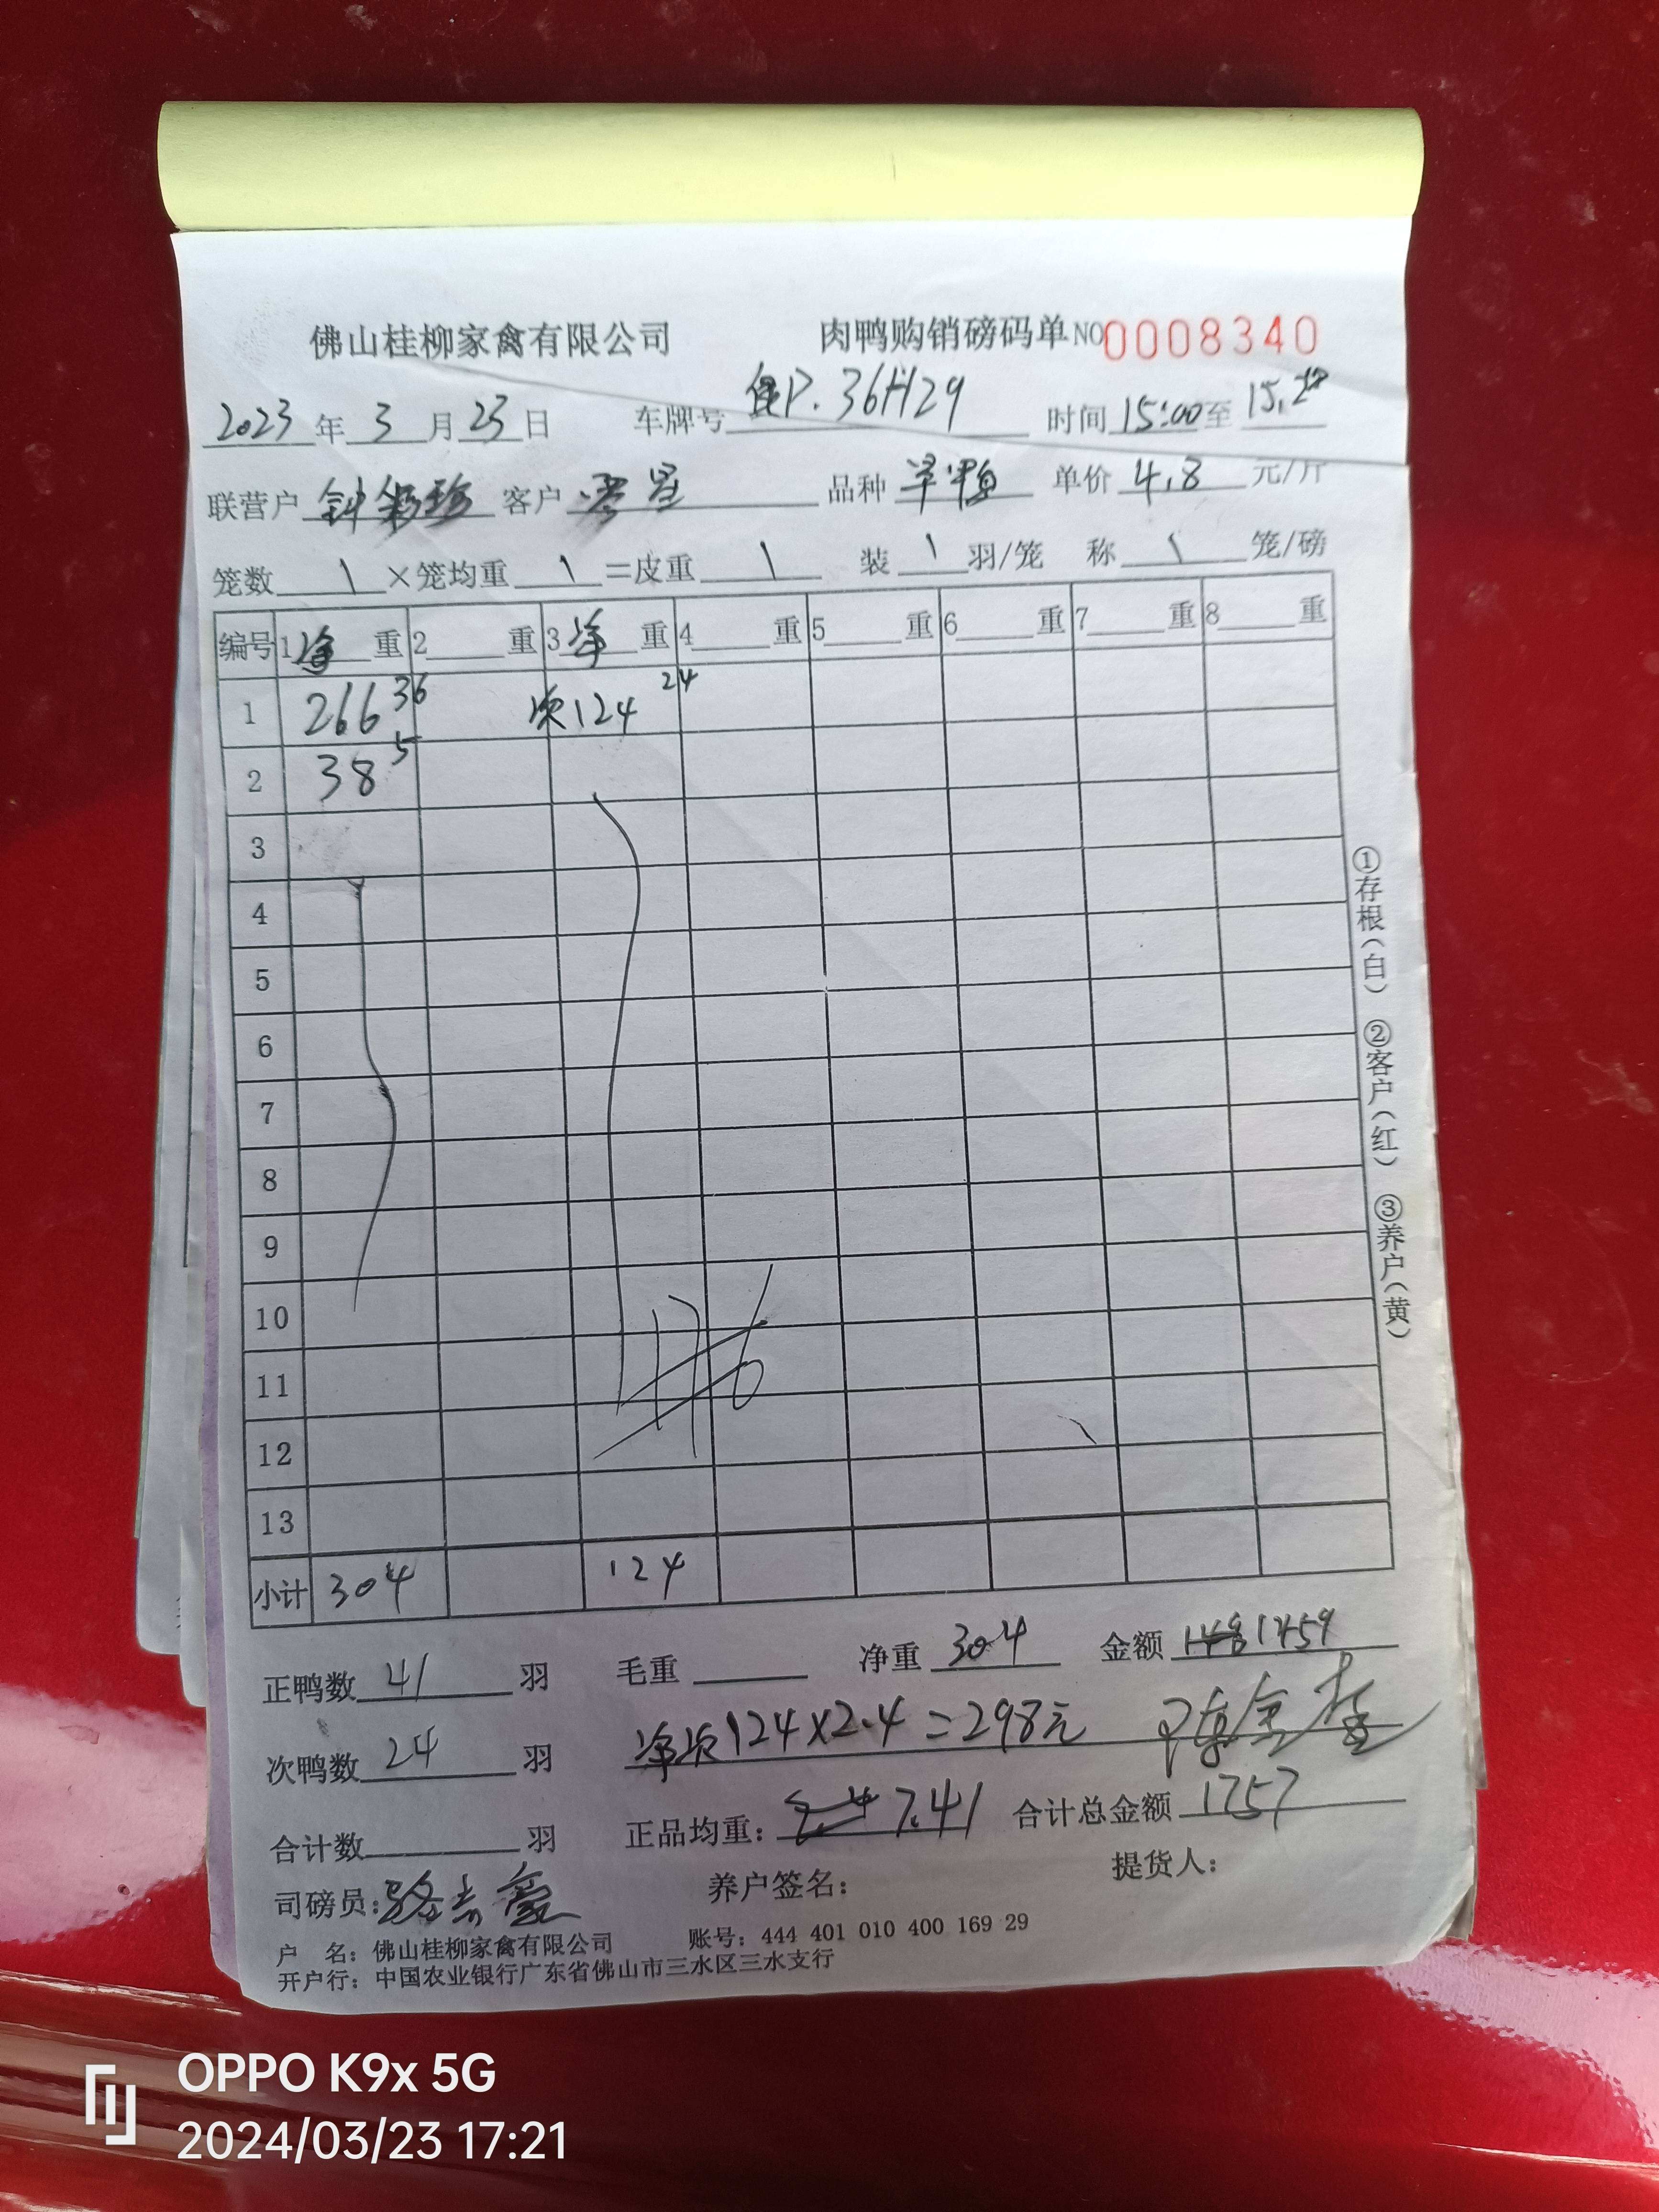 佛山桂柳家禽有限公司 肉鸭购销磅码单 NO 0008340
2023年3月23日 车牌号 P.36H29 时间 15:00 至 15.20
联营户 钟彩珍 客户 零星 品种 草鸭 单价 4.8 元/斤
笼数 \ ×笼均重 \ =皮重 \ 装 \ 羽/笼 称 \ 笼/磅
编号 1 净 重 2 重 3 净 重 4 重 5 重 6 重 7 重 8 重
1 266 36 次124 24
2 38 5
3
4
5
6
7
8
9
10
11
12
13
小计 304 124
正鸭数 41 羽 毛重 净重 304 金额 1459
次鸭数 24 羽 净次124×2.4=298元
合计数 羽 正品均重: 7.41 合计总金额 1757
司磅员: 养户签名: 提货人:
户 名: 佛山桂柳家禽有限公司 账号: 444 401 010 400 169 29
开户行: 中国农业银行广东省佛山市三水区三水支行
①存根(白) ②客户(红) ③养户(黄)
OPPO K9x 5G
2024/03/23 17:21